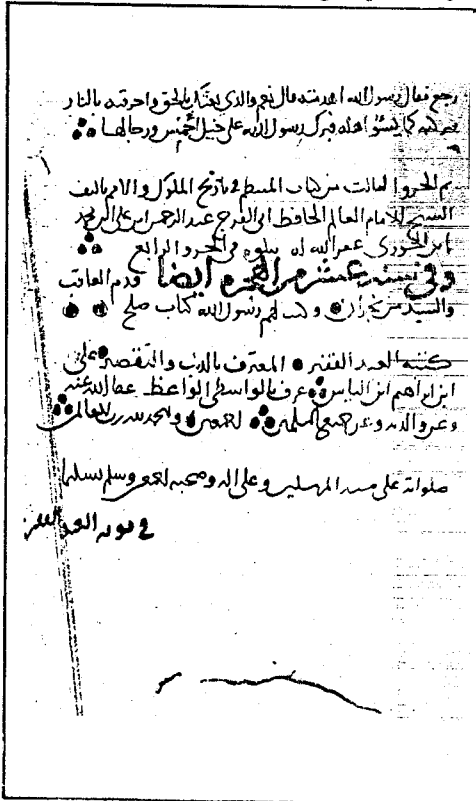 رجع فقال رسول الله اهدمته قال نعم والذي بعثك بالحق واحرقته بالنار
فتركته كما يسوء اهله فبرك رسول الله على خيل احمس ورجالها
تم الجزو الثالث من كتاب المنتظم في تاريخ الملوك والامم تاليف
الشيخ الامام العالم الحافظ ابى الفرج عبد الرحمن ابن على ابن محمد
ابن الجوزى غفر الله له يتلوه في الجزو الرابع
وفي سنة عشر من الهجرة ايضا قدم العاقب
والسيد من نجران وكتب لهم رسول الله كتاب صلح
كتبه العبد الفقير المعترف بالذنب والتقصير على
ابن ابراهيم ابن الياس عرف بالواسطى الواعظ عفا الله عنه
وعن والديه وعن جميع المسلمين اجمعين والحمد لله رب العالمين
صلواته على سيد المرسلين وعلى اله وصحبه اجمعين وسلم تسليما
في نوبة العبد الفقير